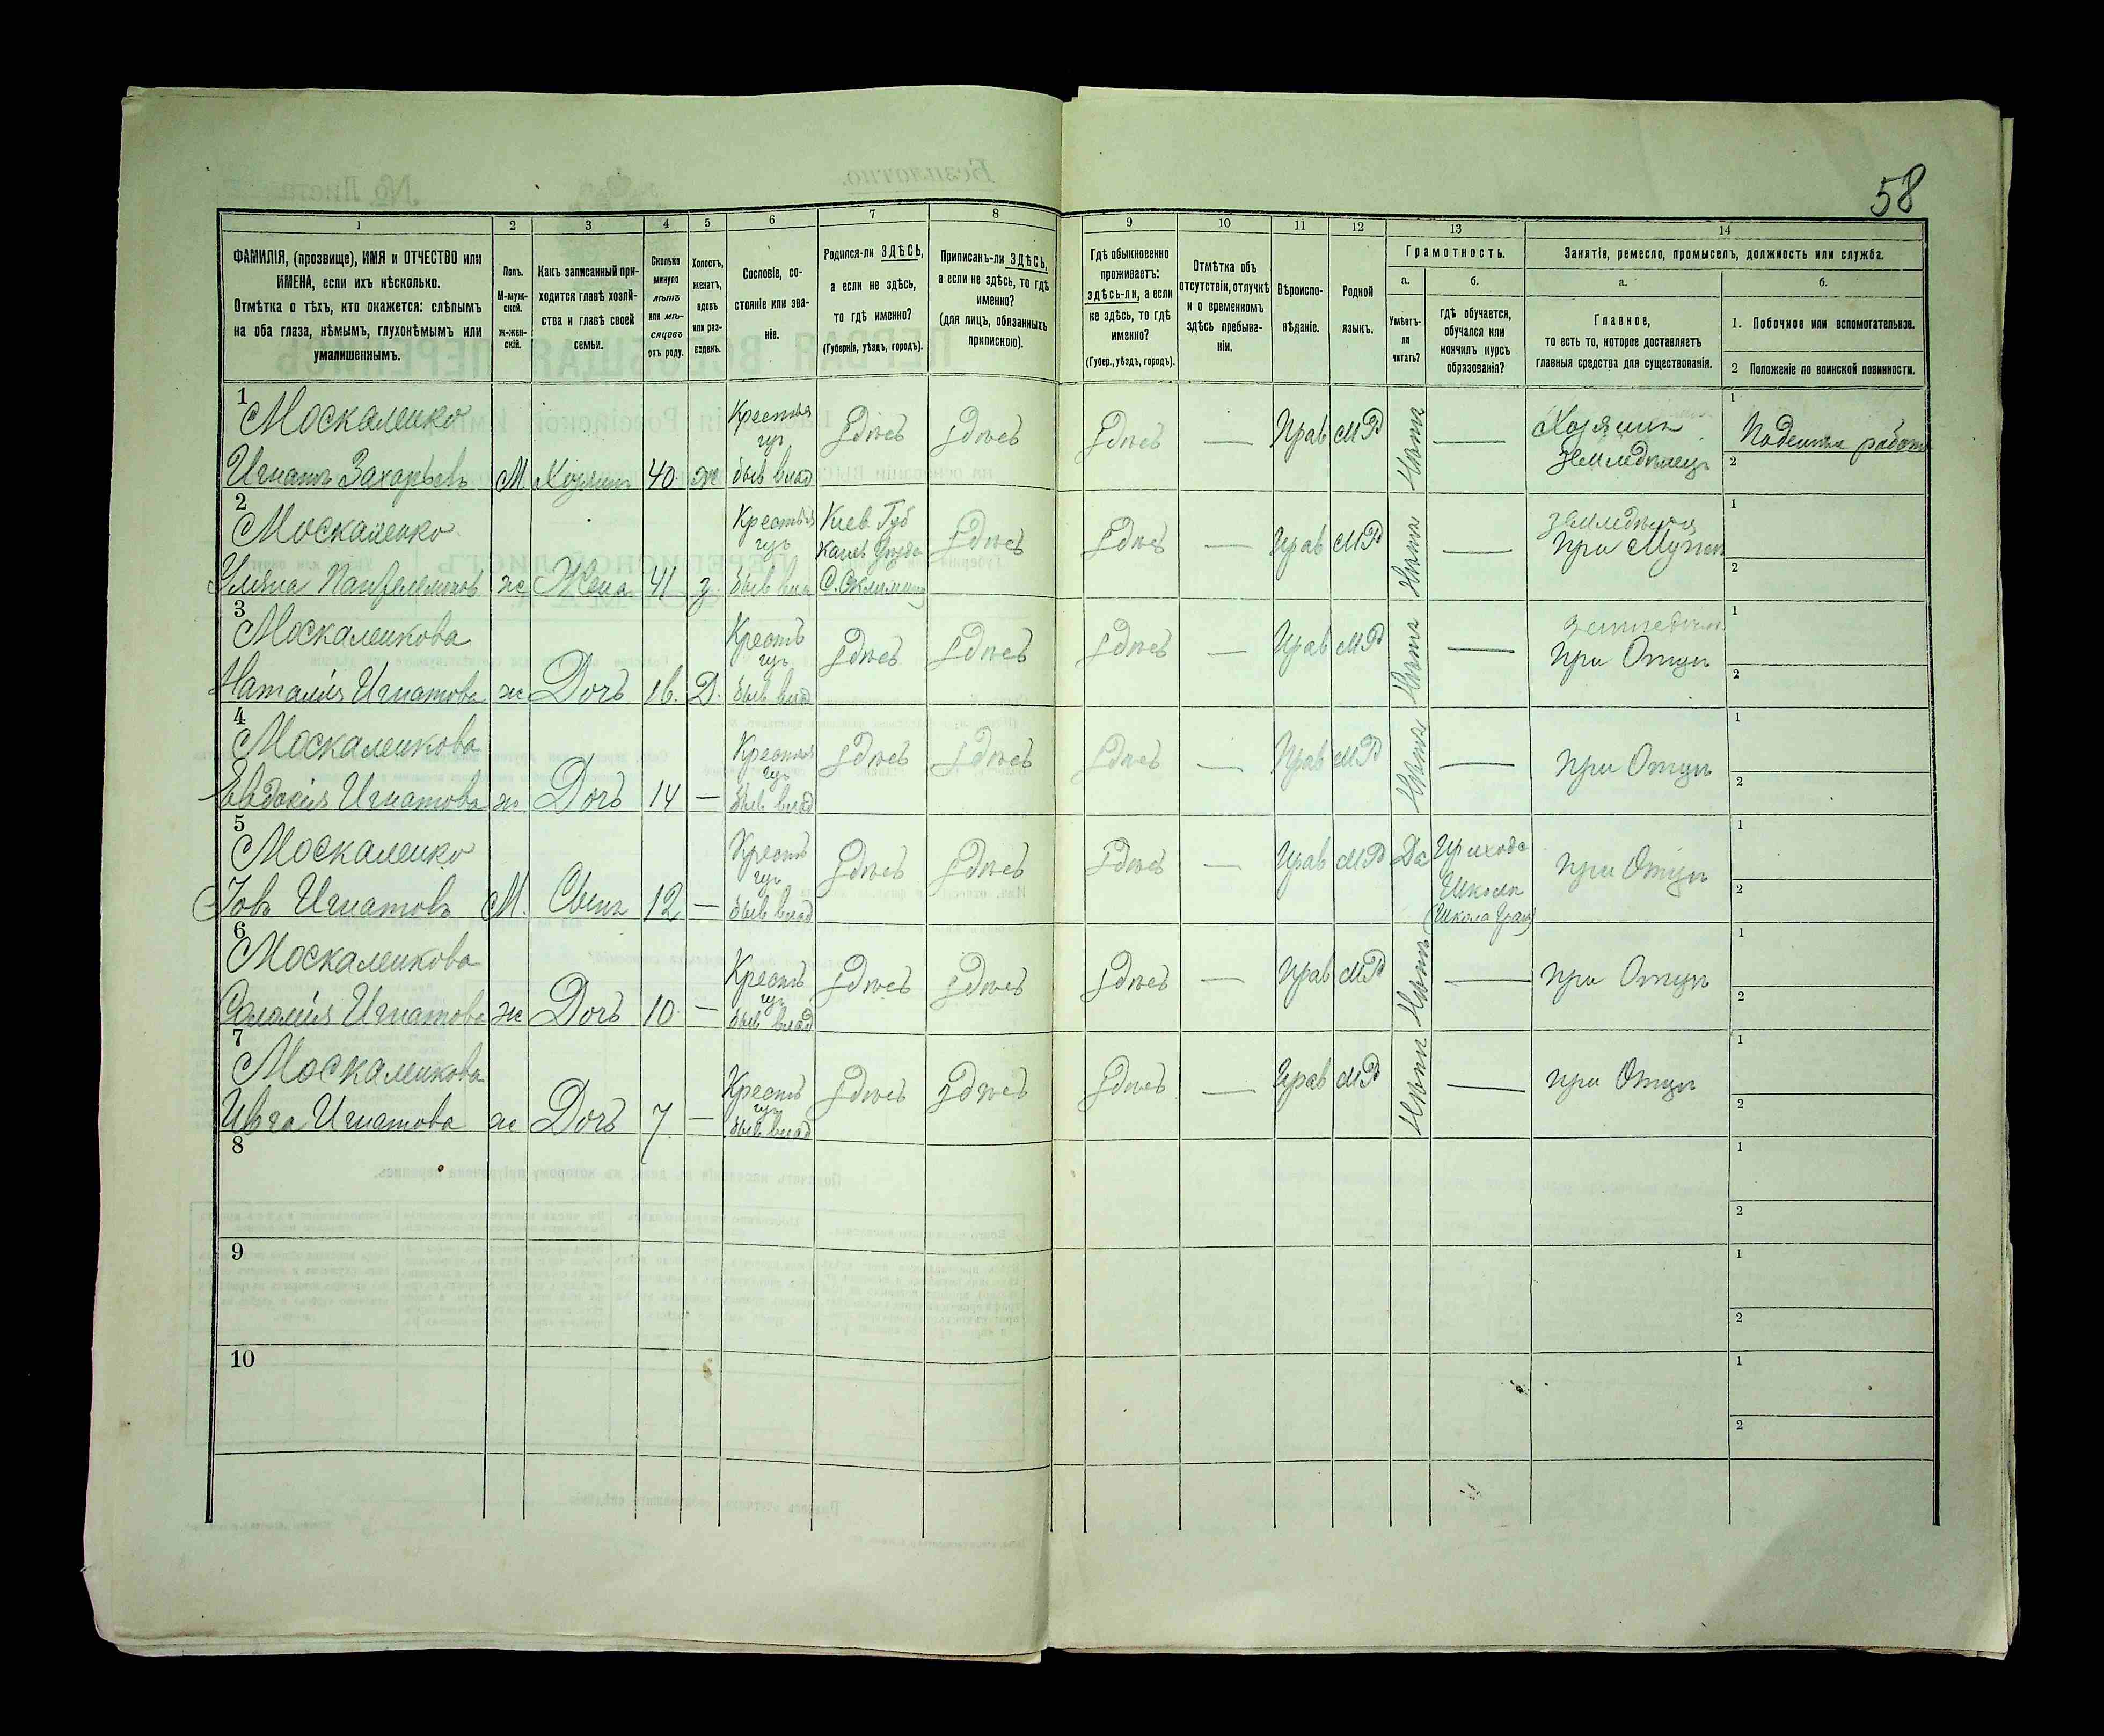 58
1 2 3 4 5 6 7 8 9 10 11 12 13 14
ФАМИЛІЯ, (прозвище), ИМЯ и ОТЧЕСТВО или ИМЕНА, если ихъ нѣсколько.
Отмѣтка о тѣхъ, кто окажется: слѣпымъ на оба глаза, нѣмымъ, глухонѣмымъ или умалишеннымъ.
Полъ. М-муж-ской. ж-жен-скій.
Какъ записанный при-ходится главѣ хозяй-ства и главѣ своей семьи.
Сколько минуло лѣтъ или мѣ-сяцевъ отъ роду.
Холостъ, женатъ, вдовъ или раз-веденъ.
Сословіе, со-стояніе или зва-ніе.
Родился-ли ЗДѢСЬ, а если не здѣсь, то гдѣ именно? (Губернія, уѣздъ, городъ).
Приписанъ-ли ЗДѢСЬ, а если не здѣсь, то гдѣ именно? (для лицъ, обязанныхъ припискою).
Гдѣ обыкновенно проживаетъ: здѣсь-ли, а если не здѣсь, то гдѣ именно? (Губер., уѣздъ, городъ).
Отмѣтка объ отсутствіи, отлучкѣ и о временномъ здѣсь пребыва-ніи.
Вѣроиспо-вѣданіе.
Родной языкъ.
Грамотность.
а. Умѣетъ-ли читать?
б. гдѣ обучается, обучался или кончилъ курсъ образованія?
Занятія, ремесло, промыселъ, должность или служба.
а. Главное, то есть то, которое доставляетъ главныя средства для существованія.
б.
1. Побочное или вспомогательное.
2 Положеніе по воинской повинности.
1 Москаленко
Игнатъ Захарьевъ М. Хозяинъ 40 ж Крестья гъ бывъ влад Здѣсь Здѣсь Здѣсь — Прав МР Нѣтъ — Хозяинъ Земледѣлецъ 1 2
2 Москаленко
Уляна ж Жена 41 з. Крестья гъ бывъ влад Киев. Губ Канев Уѣзда Здѣсь Здѣсь — Прав МР Нѣтъ — при Мужѣ 1 2
3 Москаленкова
Наталія Игнатова ж Дочь 16. Д. Крестъ гъ бывъ влад Здѣсь Здѣсь Здѣсь — Прав МР Нѣтъ — при Отцѣ 1 2
4 Москаленкова
Евдокія Игнатова ж Дочь 14 — Крестья гъ бывъ влад Здѣсь Здѣсь Здѣсь — Прав МР Нѣтъ — при Отцѣ 1 2
5 Москаленко
Іовъ Игнатовъ М. Сынъ 12 — Крестъ гъ бывъ влад Здѣсь Здѣсь Здѣсь — Прав МР Да Приходс Школѣ при Отцѣ 1 2
6 Москаленкова
Соломія Игнатова ж Дочь 10 — Крестъ гъ бывъ влад Здѣсь Здѣсь Здѣсь — Прав МР Нѣтъ — при Отцѣ 1 2
7 Москаленкова
Ивга Игнатова ж Дочь 7 — Крестъ гъ бывъ влад Здѣсь Здѣсь Здѣсь — Прав МР Нѣтъ — при Отцѣ 1 2
8 1 2
9 1 2
10 1 2